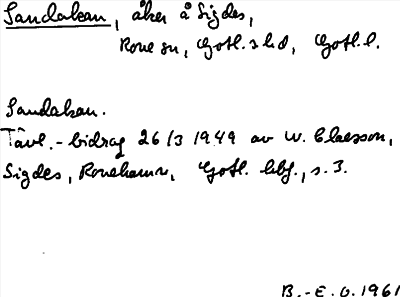 Sandakan, åker å Sigdes,
Rone sn, Gotl. s hd, Gotl. l.
Sandakan.
Tävl.-bidrag 26/3 1949 av W. Claesson,
Sigdes, Ronehamn, Gotl. hbf., s. 3.
B.-E. O. 1961